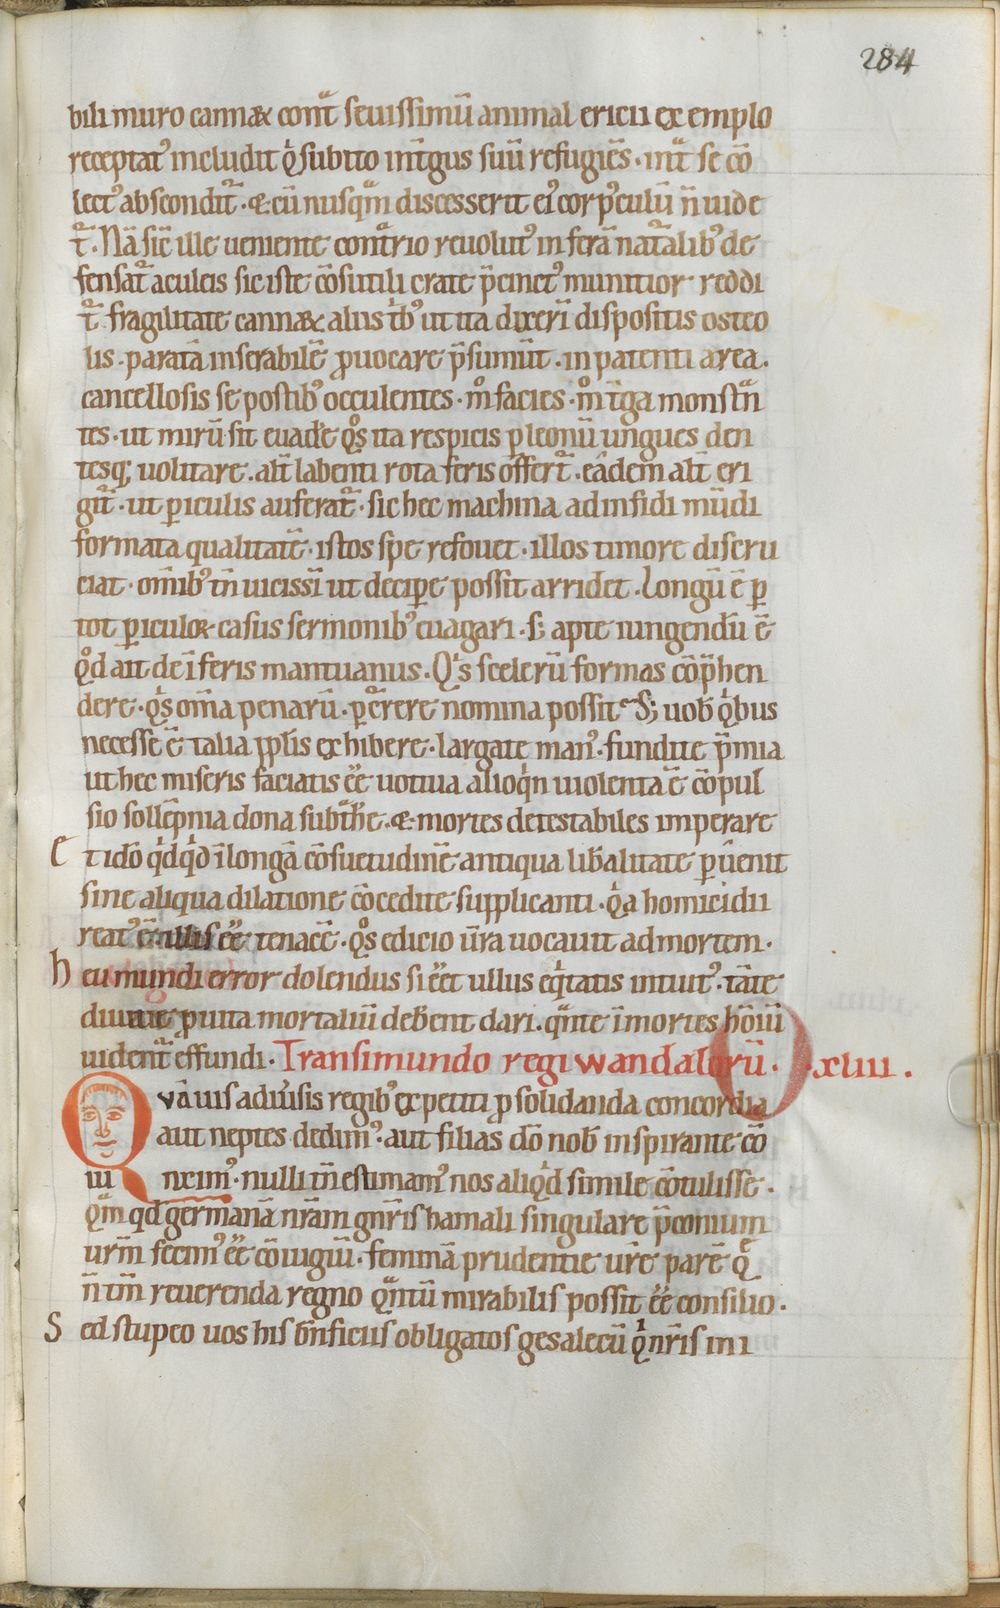 284
bili muro cannaꝝ cont̄ seuissimū animal ericii exemplo
receptatꝰ includit q̇ subito int̄gus suū refugiēs · int̄ se cō
lectꝰ abscondit̄ · ⁊ cū nusqᵃm discesserit eiꝰ corpꝰculū n̄ uide
t̄ · Nā sic̄ ille ueniente cont̄rio reuolutꝰ in ferā nat̄alibꝰ de
fensat̄ aculeis sic iste cōsutili crate p̄cinctꝰ munitior reddi
t̄ fragilitate cannaꝝ aliis t̄bꝰ ut ita dixeri᷑ dispositis ostio
lis · paratā inserabilē ꝓuocare p̄sumūt · in patenti area ·
cancellosis se postibꝰ occulentes · m̊ facies · m̊ t̄ga monstᵃn
tes · ut mirū sit euade᷑ qͦs ita respicis p leonū ungues den
tesq; uolitare · alt̄ labenti rota feris offert̄ · eādem alt̄ eri
git̄ · ut ꝑiculis auferat̄ · sic hec machina ad infidi mūdi
formata qualitatē · istos spe refouet · illos timore discru
ciat · om̄ibꝰ tn̄ uicissi᷑ ut decipe᷑ possit arridet · Longū ē ꝑ
tot ꝑiculoꝝ casus sermonibꝰ euagari · s; apte iungendū ē
qͦd ait de i᷑feris mantuanus · Qⁱs scelerū formas cōp̄hen
dere · qⁱs om̄a penarū · ꝑcͬrere nomina possit · S; uob̄ qⁱbus
necesse ē talia ppl̄is exhibere · largate manꝰ · fundite p̄mia
ut hec miseris faciatis ēē uotiua alioqⁱn uiolenta ē cōpul
sio sollēpnia dona subt̄he᷑ · ⁊ mortes detestabiles imperare
E t idō qⁱdqⁱd i᷑ longā cōsuetudinē antiqua lib̄alitate ꝑuēnit
sine aliqua dilatione cōcedite supplicanti · qⁱa homicidii
reatꝰ ē illis ēē tenacē · qͦs edicio ūra uocauit ad mortem ·
h eu mundi error dolendus si ēēt ullus eqⁱtatis intuitꝰ · tāte
diuitie ꝓ uita mortaliū deb̄ent dari · qᵃnte i᷑ mortes hōiū
uident̄ effundi · Transimundo regi wandalorū · xliii ·
Q vāuis adiūsis regibꝰ expetiti ꝓ solidanda concordia
aut neptes dedimꝰ · aut filias dō nob̄ inspirante cō
iu nximꝰ · nulli tn̄ estimamꝰ nos aliqⁱd simile cōtulisse ·
qᵃm qd̄ germanā nr̄am gn̄ris hamali singulare p̄conium
ur̄m fecimꝰ ēē cōiugiū · feminā prudentie ur̄e parē q̄
n̄ tm̄ reuerenda regno qᵃntū mirabilis possit ēē consilio ·
S ed stupeo uos his bn̄ficiis obligatos gesalecū qⁱ nr̄is ini